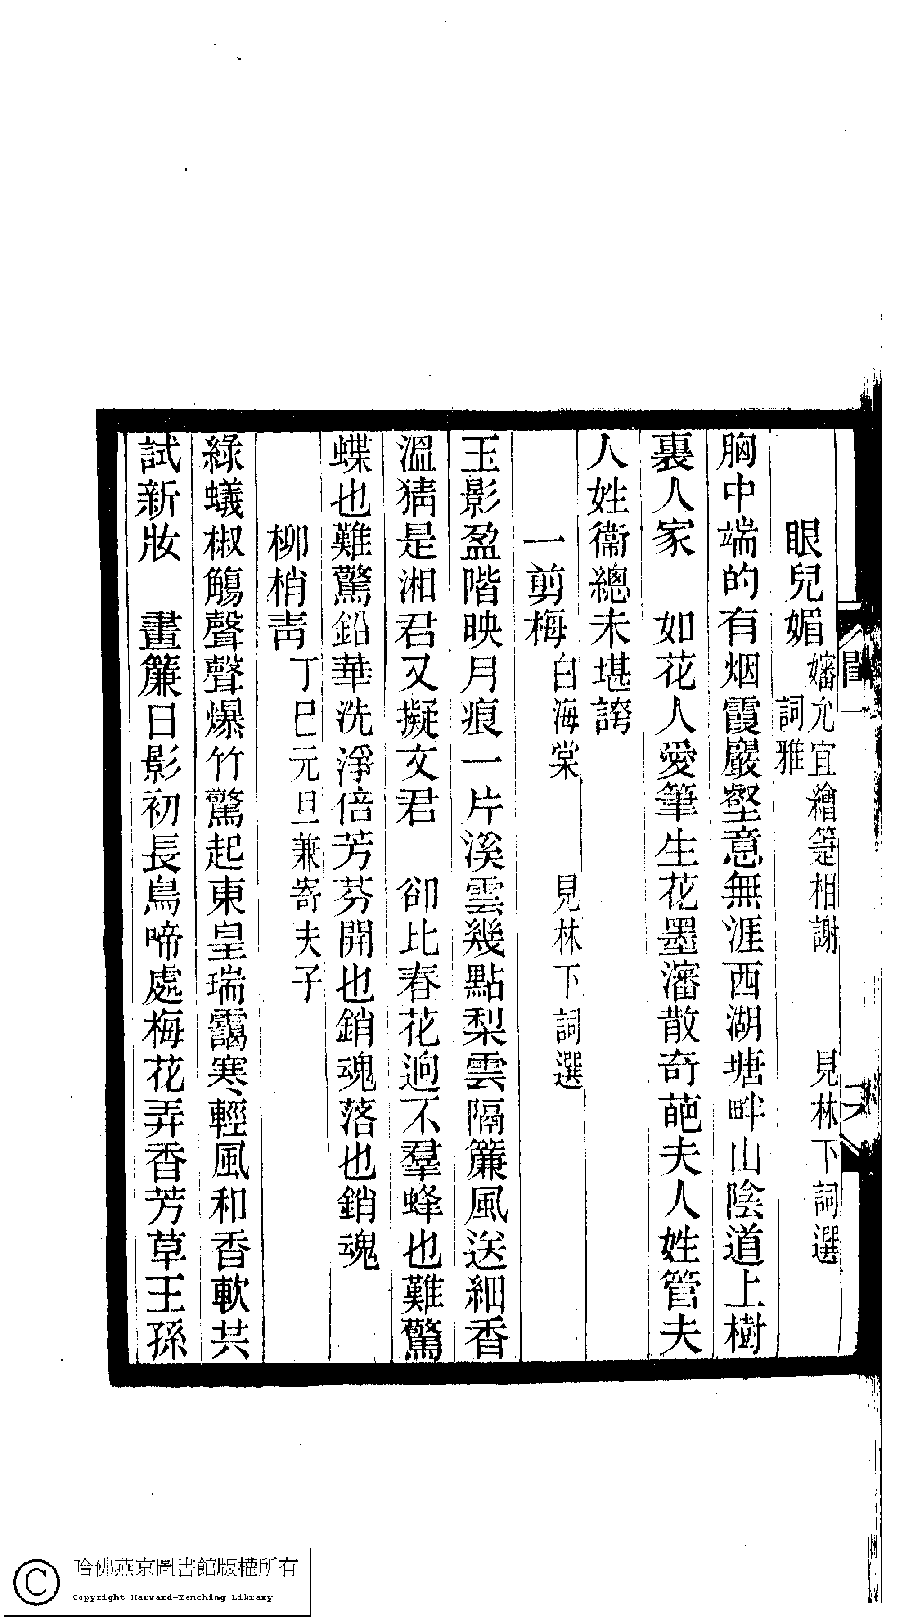 眼兒媚 嬸允宜繪箑相謝 見林下詞選
詞雅
胸中端的有烟霞巖壑意無涯西湖塘畔山陰道上樹
裏人家 如花人愛筆生花墨瀋散奇葩夫人姓管夫
人姓衞總未堪誇
一剪梅 白海棠 見林下詞選
玉影盈階映月痕一片溪雲幾點梨雲隔簾風送細香
溫猜是湘君又擬文君 卻比春花迥不羣蜂也難驚
蝶也難驚鉛華洗淨倍芳芬開也銷魂落也銷魂
柳梢靑 丁巳元旦兼寄夫子
綠蟻椒觴聲聲爆竹驚起東皇瑞靄寒輕風和香軟共
試新妝 畫簾日影初長鳥啼處梅花弄香芳草王孫
哈佛燕京圖書館版權所有
Copyright Harvard-Yenching Library